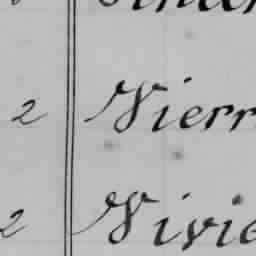 2 Vierr
2 Vivie